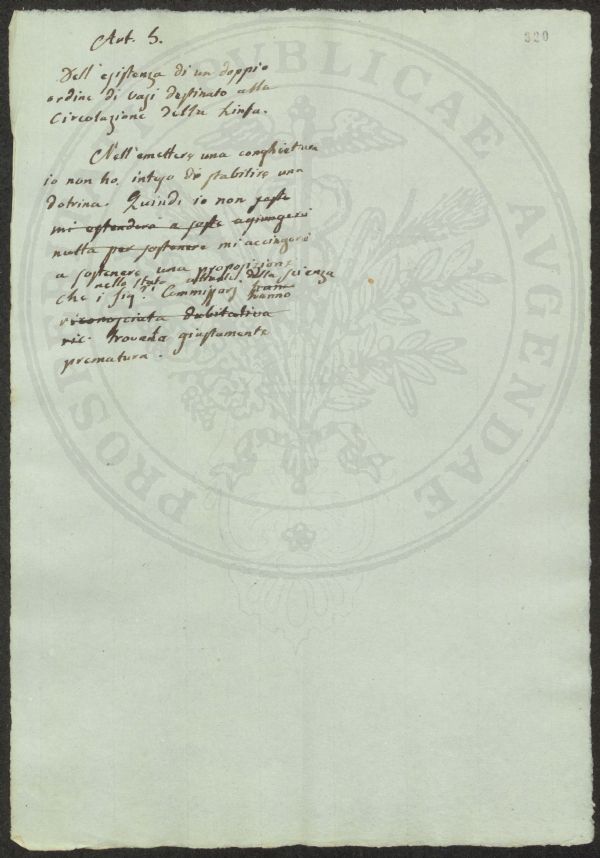 320
Art. 5.
Dell'esistenza di un doppio
ordine di vasi destinato alla
Circolazione della Linfa.
Nell'emettere una conghiettura
io non ho inteso di stabilire una
dotrina. Quindi io non
mi estenderò a agiungere
nulla per sostenere mi accingerò
a sostenere una proposizione
nello stato attuale della scienza
che i Sig.ri Commissarj hanno
riconosciuta dubitativa
ric. trovata giustamente
prematura.
PROSPERITATI PUBLICAE AUGENDAE